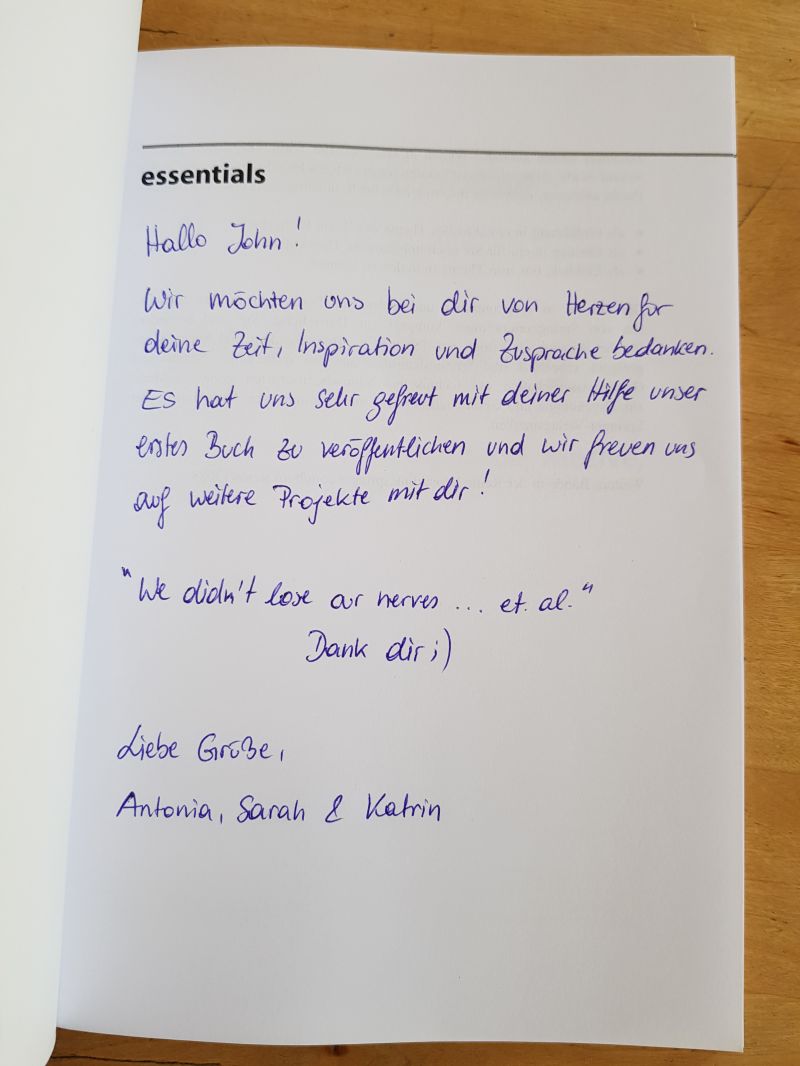 essentials
Hallo John!
Wir möchten uns bei dir von Herzen für
deine Zeit, Inspiration und Zusprache bedanken.
Es hat uns sehr gefreut mit deiner Hilfe unser
erstes Buch zu veröffentlichen und wir freuen uns
auf weitere Projekte mit dir!
"We didn't lose our nerves ... et. al."
Dank dir ;)
Liebe Grüße,
Antonia, Sarah & Katrin